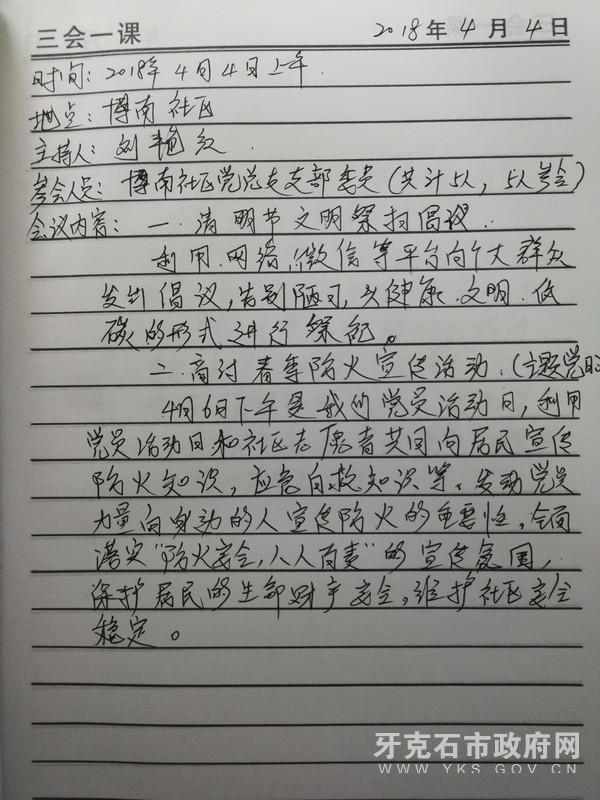 三会一课 2018年4月4日
时间：2018年4月4日上午.
地点：博南社区
主持人：刘艳红.
参会人员：博南社区党总支支部委员（共计5人，5人参会）
会议内容：一.清明节文明祭扫倡议.
利用.网络.微信等平台向广大群众
发出倡议，告别陋习，以健康.文明.低
碳的形式进行祭祀。
二.商讨春季防火宣传活动.（主题党日）
4月6日下午是我们党员活动日，利用
党员活动日和社区志愿者共同向居民宣传
防火知识，应急自救知识等。发动党员
力量向身边的人宣传防火的重要性，全面
落实“防火安全，人人有责”的宣传氛围，
保护居民的生命财产安全，维护社区安全
稳定。
牙克石市政府网
WWW.YKS.GOV.CN